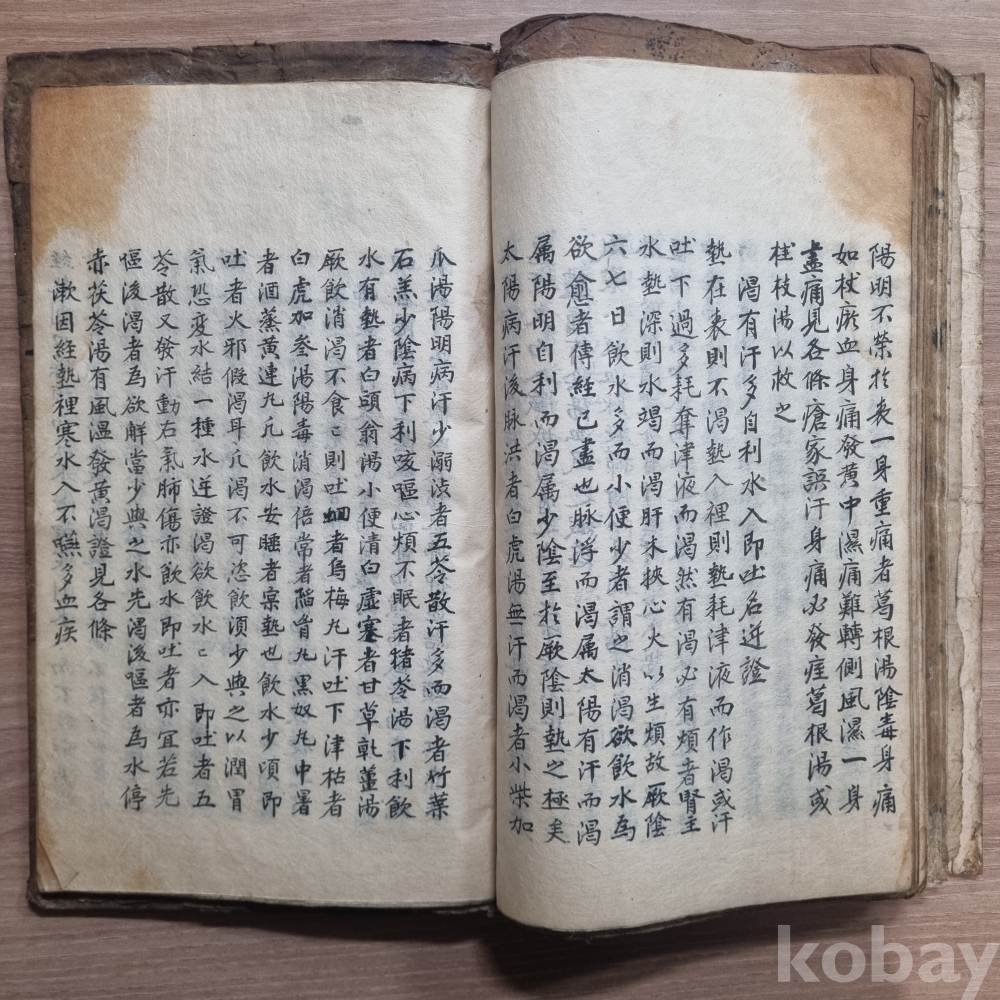 陽明不榮於表一身重痛者葛根湯陰毒身痛
如杖瘀血身痛發黃中濕痛難轉側風濕一身
盡痛見各條瘡家誤汗身痛必發痓葛根湯或
桂枝湯以救之
渴有汗多自利水入即吐名逆證
熱在表則不渴熱入裡則熱耗津液而作渴或汗
吐下過多耗奪津液而渴然有渴必有煩者腎主
水熱深則水竭而渴肝木挾心火以生煩故厥陰
六七日飮水多而小便少者謂之消渴欲飮水為
欲愈者傳經已盡也脉浮而渴属太陽有汗而渴
属陽明自利而渴属少陰至於厥陰則熱之極矣
太陽病汗後脉洪者白虎湯無汗而渴者小柴加
瓜湯陽明病汗少溺澁者五苓散汗多而渴者竹葉
石羔少陰病下利咳嘔心煩不眠者猪苓湯下利飮
水有熱者白頭翁湯小便清白虛寒者甘草乾薑湯
厥飮消渴不食〻則吐蛔者烏梅丸汗吐下津枯者
白虎加叅湯陽毒消渴倍常者陷胷丸黑奴丸中暑
者酒蒸黃連丸凡飮水安睡者宲熱也飮水少頃即
吐者火邪假渴耳凡渴不可恣飮湏少與之以潤胃
氣恐变水結一種水逆證渴欲飮水〻入即吐者五
苓散又發汗動右氣肺傷亦飮水即吐者亦宜若先
嘔後渴者為欲解當少與之水先渴後嘔者為水停
赤茯苓湯有風溫發黃渴證見各條
漱因經熱裡寒水入不嚥多血疾
kobay